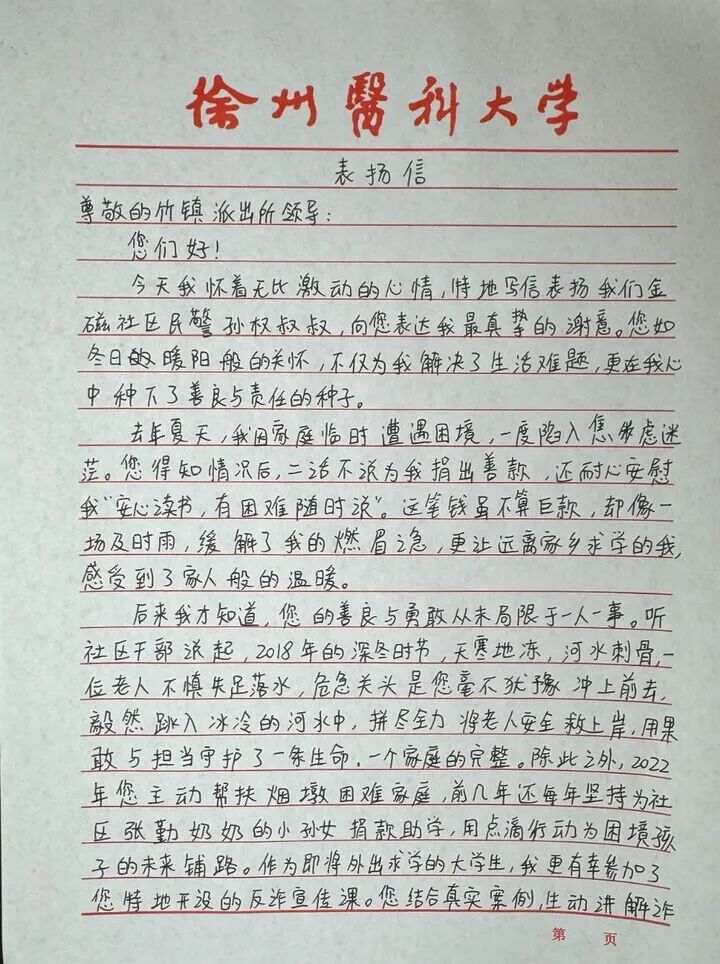 徐州醫科大学
表扬信
尊敬的竹镇派出所领导：
您们好！
今天我怀着无比激动的心情，特地写信表扬我们金
磁社区民警孙权叔叔，向您表达我最真挚的谢意。您如
冬日的暖阳般的关怀，不仅为我解决了生活难题，更在我心
中种下了善良与责任的种子。
去年夏天，我因家庭临时遭遇困境，一度陷入焦虑迷
茫。您得知情况后，二话不说为我捐出善款，还耐心安慰
我“安心读书，有困难随时说”。这笔钱虽不算巨款，却像一
场及时雨，缓解了我的燃眉之急，更让远离家乡求学的我，
感受到了家人般的温暖。
后来我才知道，您的善良与勇敢从未局限于一人一事。听
社区干部说起，2018年的深冬时节，天寒地冻，河水刺骨，一
位老人不慎失足落水，危急关头是您毫不犹豫冲上前去，
毅然跳入冰冷的河水中，拼尽全力将老人安全救上岸，用果
敢与担当守护了一条生命，一个家庭的完整。除此之外，2022
年您主动帮扶烟墩困难家庭，前几年还每年坚持为社
区张勤奶奶的小孙女捐款助学，用点滴行动为困境孩
子的未来铺路。作为即将外出求学的大学生，我更有幸参加了
您特地开设的反诈宣传课。您结合真实案例，生动讲解诈
第 页